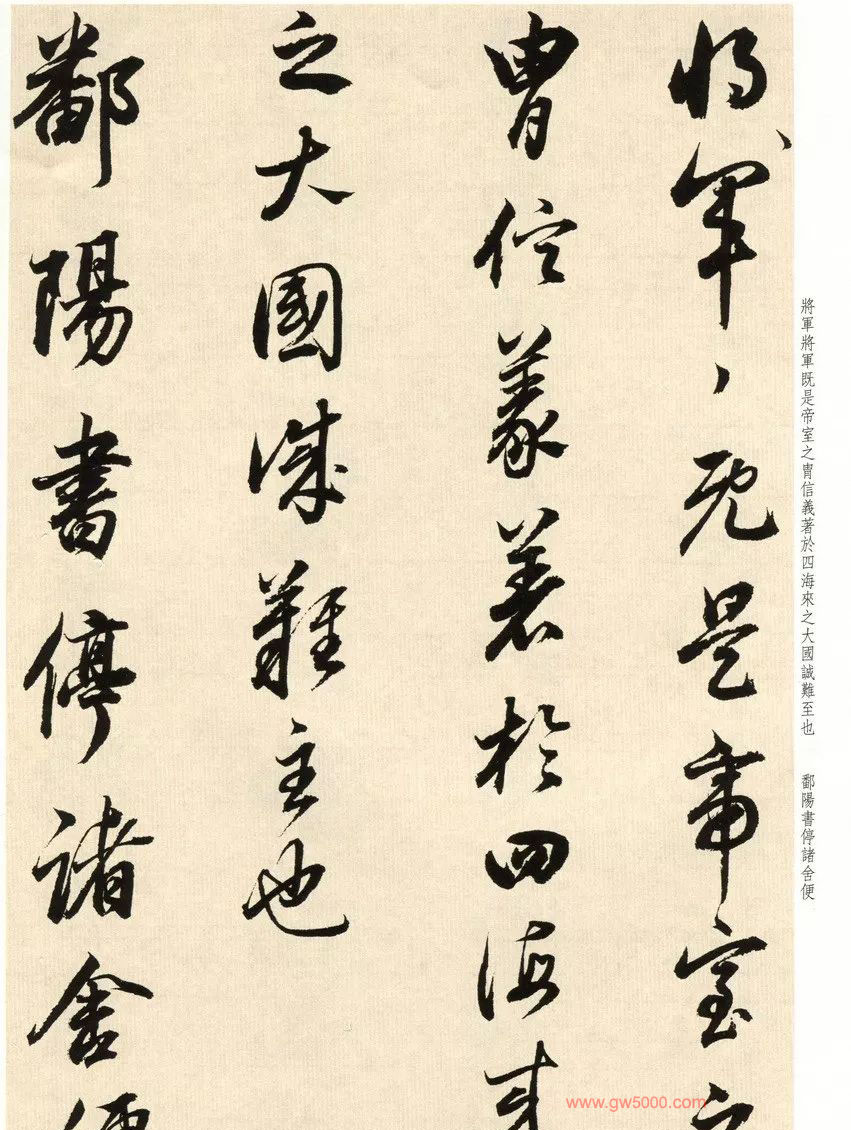 將軍將軍既是帝室之胄信義著於四海來之大國誠難至也　鄱陽書停諸舍便
將軍、既是帝室之
胄信義著於四海來
之大國誠難主也
鄱陽書停諸舍便
www.gw5000.com